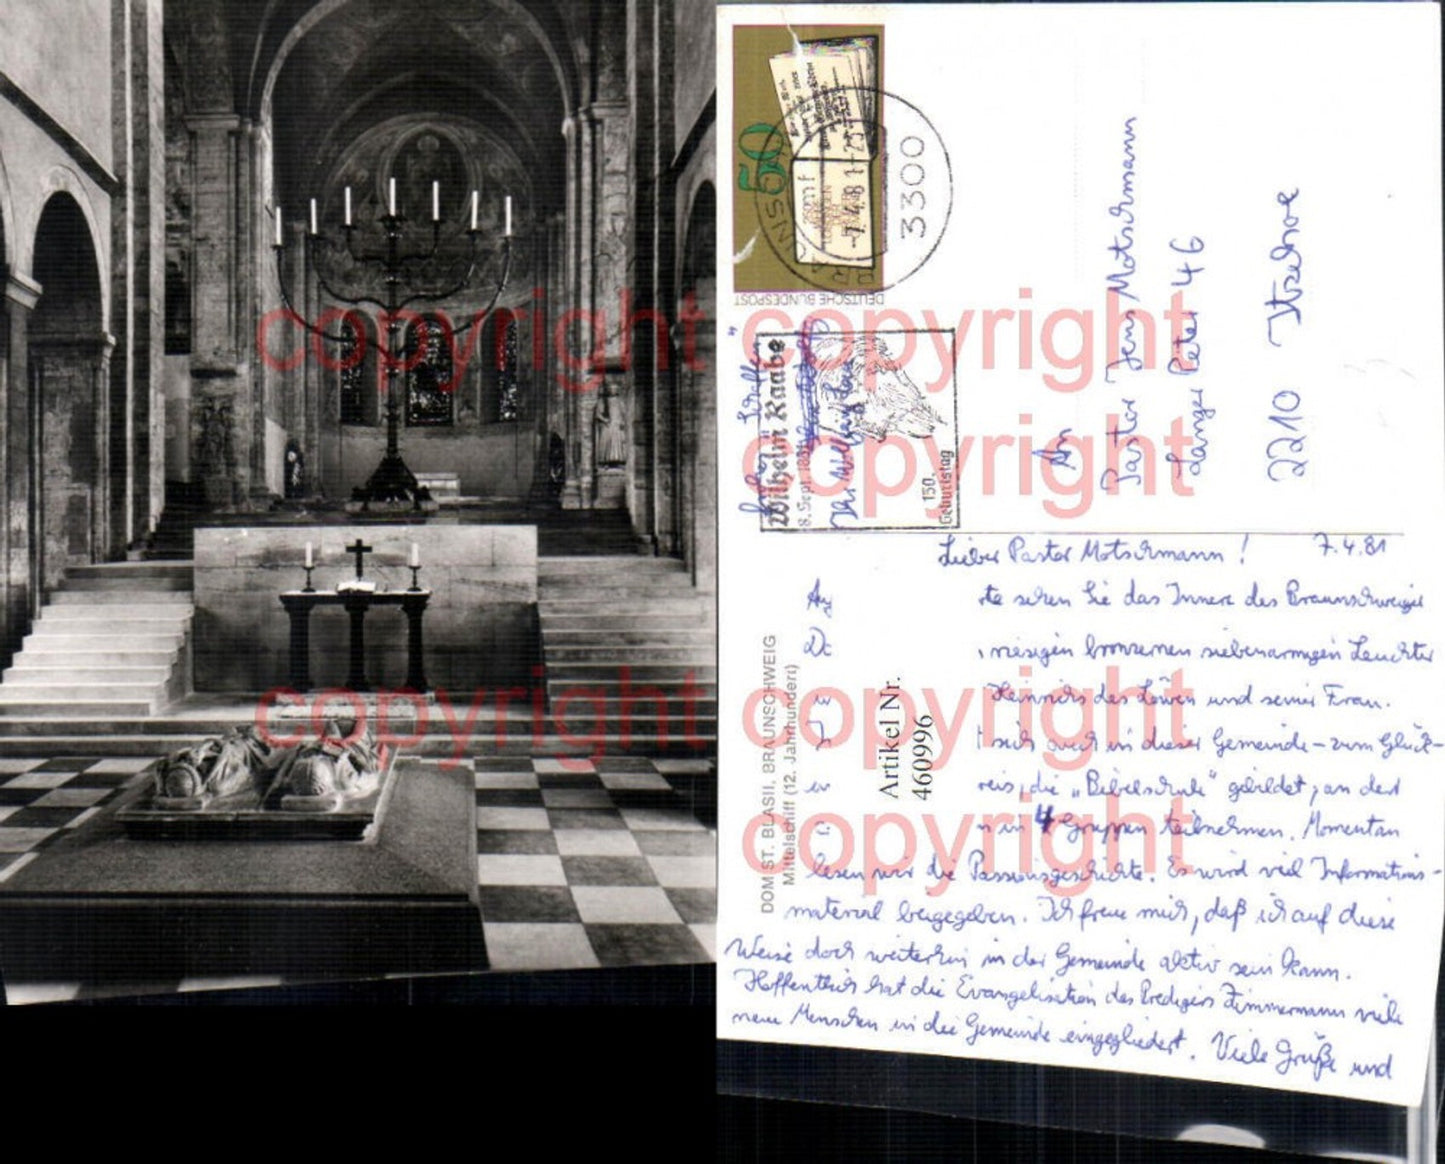 50
DEUTSCHE BUNDESPOST
3300
-7.4.81-23
Wilhelm Raabe
8. Sept. 1831
150.
Geburtstag
An
Pastor Jens Motschmann
Langer Peter 46
2210 Itzehoe
Lieber Pastor Motschmann! 7.4.81
sehen Sie das Innere des Braunschweiger
riesigen bronzenen siebenarmigen Leuchter
Heinrichs des Löwen und seiner Frau.
sich auch in dieser Gemeinde - zum Glück -
die "Bibelschule" gebildet, an der
in 4 Gruppen teilnehmen. Momentan
lesen wir die Passionsgeschichte. Es wird viel Informations-
material beigegeben. Ich freue mich, daß ich auf diese
Weise doch weiterhin in der Gemeinde aktiv sein kann.
Hoffentlich hat die Evangelisation des Predigers Zimmermann viele
neue Menschen in die Gemeinde eingegliedert. Viele Grüße und
DOM ST. BLASII, BRAUNSCHWEIG
Mittelschiff (12. Jahrhundert)
Artikel Nr.
460996
copyright copyright
copyright
copyright copyright
copyright